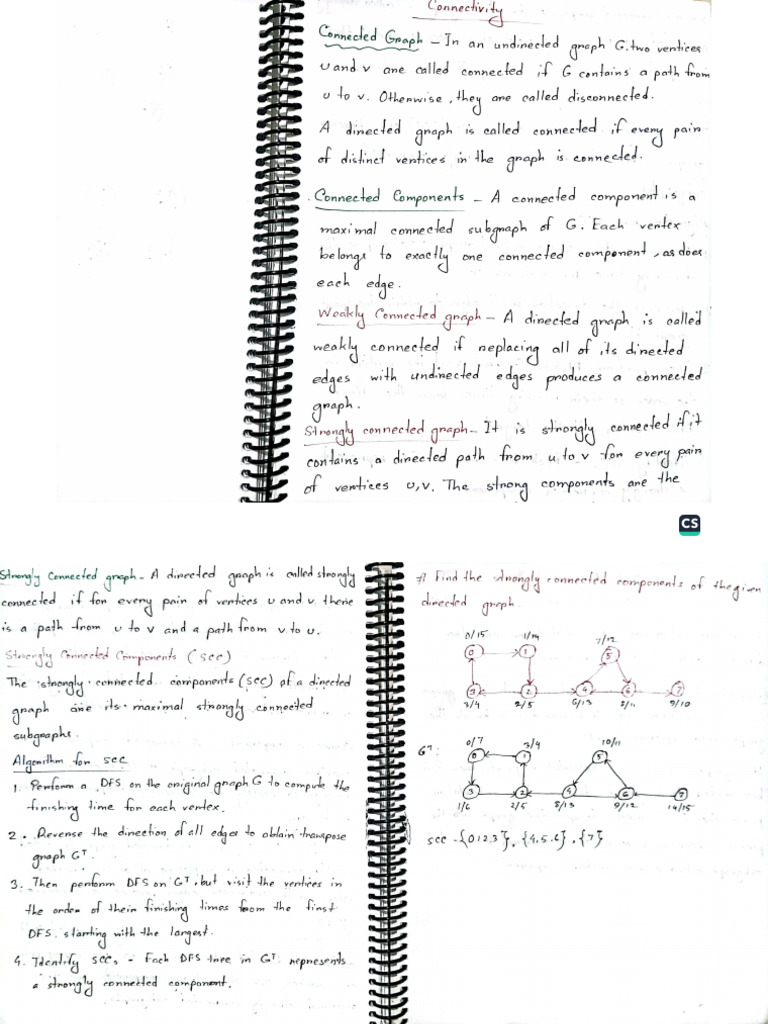 Connectivity
Connected Graph - In an undirected graph G. two vertices
u and v are called connected if G contains a path from
u to v. Otherwise, they are called disconnected.
A directed graph is called connected if every pair
of distinct vertices in the graph is connected.
Connected Components - A connected component is a
maximal connected subgraph of G. Each vertex
belongs to exactly one connected component, as does
each edge.
Weakly Connected graph - A directed graph is called
weakly connected if replacing all of its directed
edges with undirected edges produces a connected
graph.
Strongly connected graph - It is strongly connected if it
contains a directed path from u to v for every pair
of vertices u,v. The strong components are the
CS
Strongly Connected graph - A directed graph is called strongly
connected if for every pair of vertices u and v there
is a path from u to v and a path from v to u.
Strongly Connected Components (SCC)
The strongly connected components (SCC) of a directed
graph are its maximal strongly connected
subgraphs.
Algorithm for SCC
1. Perform a DFS on the original graph G to compute the
finishing time for each vertex.
2. Reverse the direction of all edges to obtain transpose
graph Gᵀ.
3. Then perform DFS on Gᵀ, but visit the vertices in
the order of their finishing times from the first
DFS, starting with the largest.
4. Identify SCCs - Each DFS tree in Gᵀ represents
a strongly connected component.
# Find the strongly connected components of the given
directed graph.
0/15 1/14 7/12
0 1 5
3 2 4 6 7
3/4 2/5 6/13 8/11 9/10
Gᵀ:
0/7 3/4 10/11
0 1 5
3 2 4 6 7
1/6 2/5 8/13 9/12 14/15
SCC - {0123}, {4,5,6}, {7}